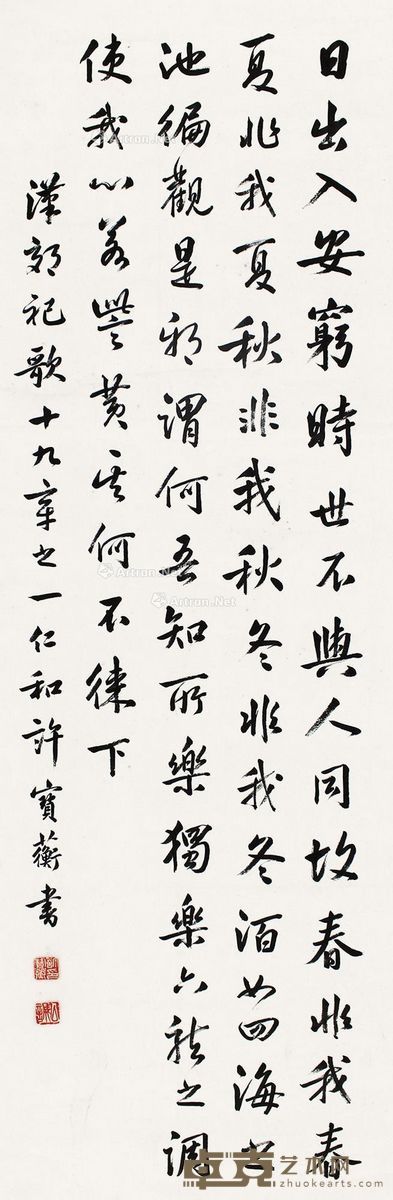 日出入安窮時世不與人同故春非我春
夏非我夏秋非我秋冬非我冬泊如四海之
池徧觀是邪謂何吾知所樂獨樂六龍之調
使我心若訾黃其何不徠下
漢郊祀歌十九章之一仁和許寶蘅書
Artron.Net
Artron.Net
Artron.Net
Artron.Net
卓克艺术网
zhuokearts.com